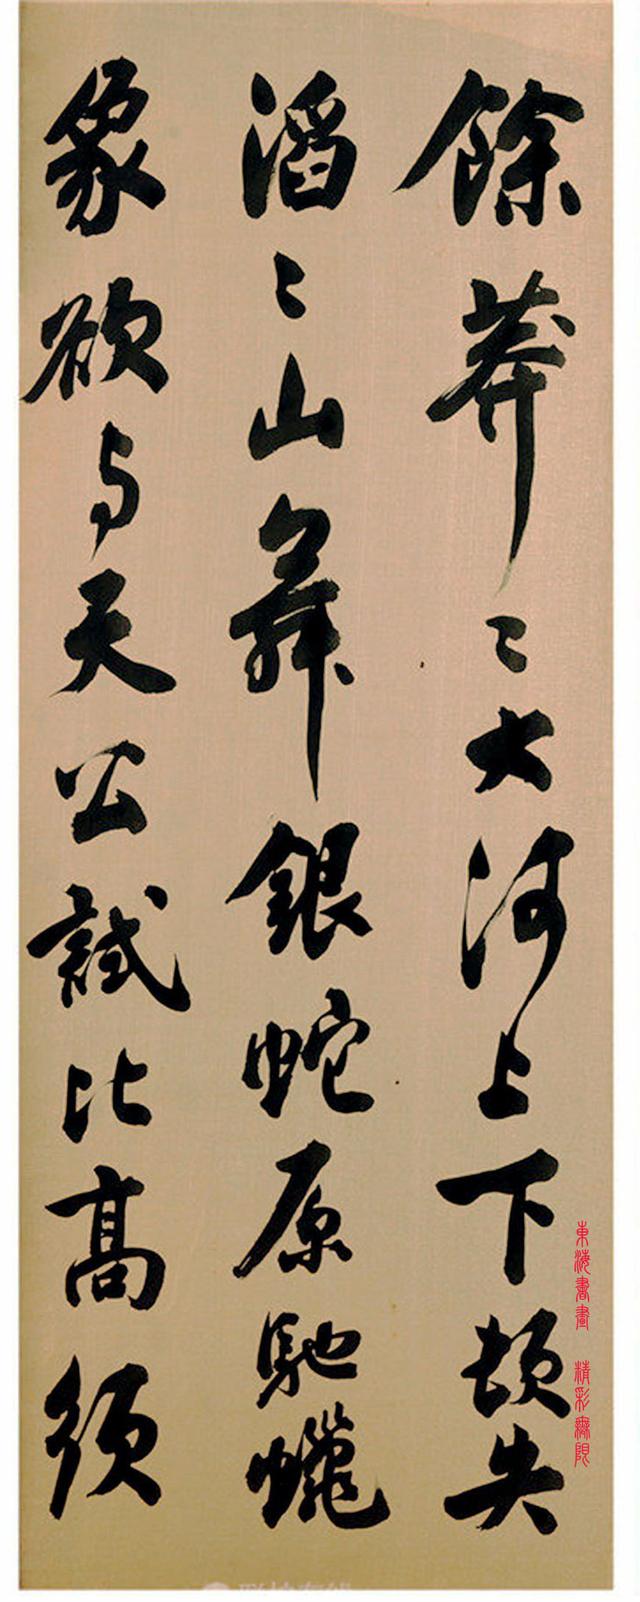 餘莽〻大河上下頓失
滔〻山舞銀蛇原馳蠟
象欲与天公試比高須
東海書畫 精彩無限